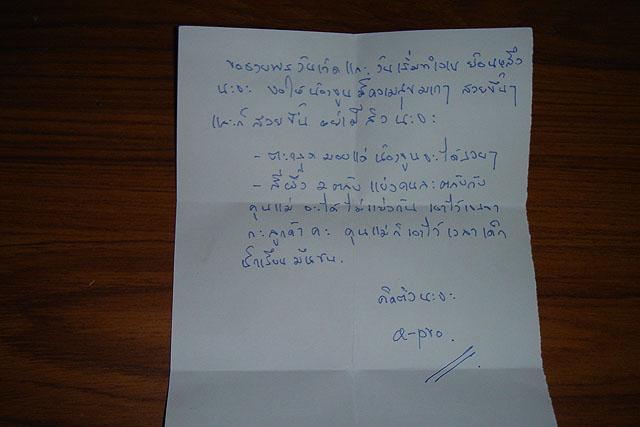 ขออวยพร วันเกิด และ วันเริ่มทำงาน ย้อนหลัง
นะจ๊ะ ขอให้น้องขุนมีความสุขมากๆ สวยขึ้นๆ
และก็ สวยขึ้น อย่ามีสิว นะจ๊ะ
- มอบแด่ น้องขุน จะได้รวยๆ
- สีผึ้ง 2 ตลับ แบ่งคนละตลับกับ
คุณแม่ จะได้ไม่แย่งกัน เอาไว้เวลา
ลูกค้า คุณแม่ก็เอาไว้เวลาเด็ก
นักเรียน
คิดถึงนะจ๊ะ
a-pro.